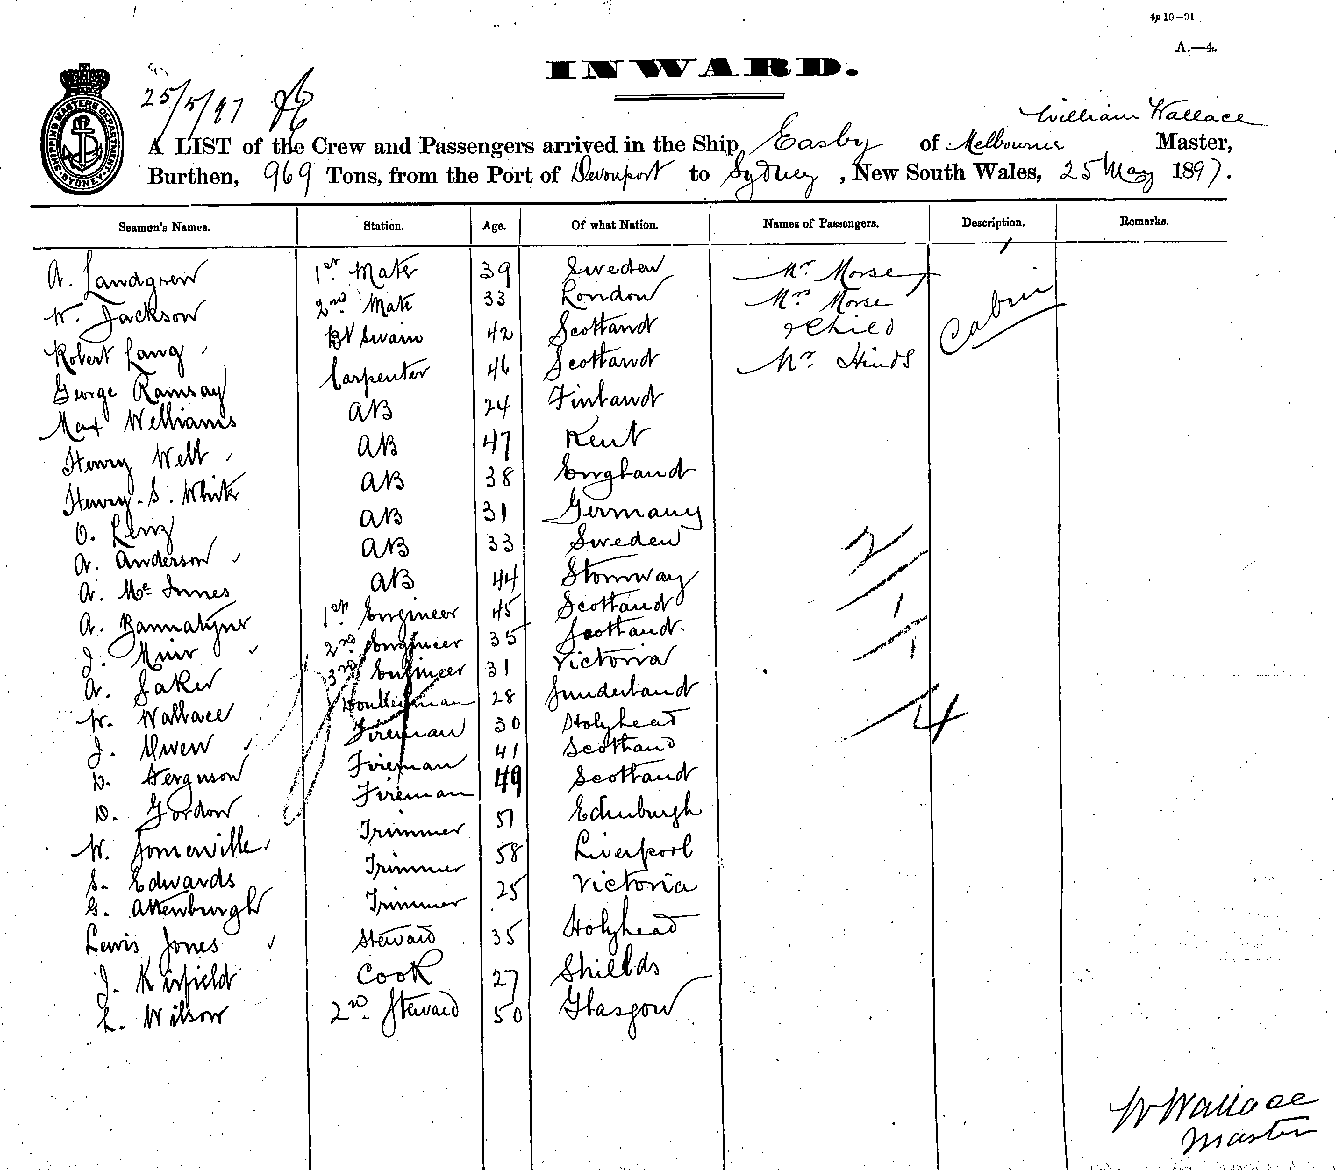 4p 10—91
A.—4.
INWARD.
25/5/97
William Wallace
A LIST of the Crew and Passengers arrived in the Ship, Easby of Melbourne Master,
Burthen, 969 Tons, from the Port of Devonport to Sydney, New South Wales, 25 May 1897.
SHIPPING MASTERS DEPARTMENT SYDNEY
Seamen's Names. Station. Age. Of what Nation. Names of Passengers. Description. Remarks.
A. Landgren 1st Mate 39 Sweden Mr Morse
W. Jackson 2nd Mate 33 London Mrs Morse Cabin
Robert Lang Bt Swain 42 Scotland & Child
George Ramsay Carpenter 46 Scotland Mr Hinds
Max Williams AB 24 Finland
Henry Welt AB 47 Kent
Henry S. White AB 38 England
O. Lenz AB 31 Germany
A. Anderson AB 33 Sweden 2
A. Mc Innes AB 44 Stornway
A. Bannatyne 1st Engineer 45 Scotland 1
J. Muir 2nd Engineer 35 Scotland 1
A. Jaker 3rd Engineer 31 Victoria
W. Wallace 28 Sunderland 4
J. Owen Fireman 30 Holyhead
D. Ferguson Fireman 41 Scotland
D. Gordon Fireman 49 Scotland
W. Somerville Trimmer 51 Edinburgh
S. Edwards Trimmer 58 Liverpool
G. Attenburgh Trimmer 25 Victoria
Lewis Jones Steward 35 Holyhead
J. Kirfield Cook 27 Shields
L. Wilson 2nd Steward 50 Glasgow
W Wallace
Master